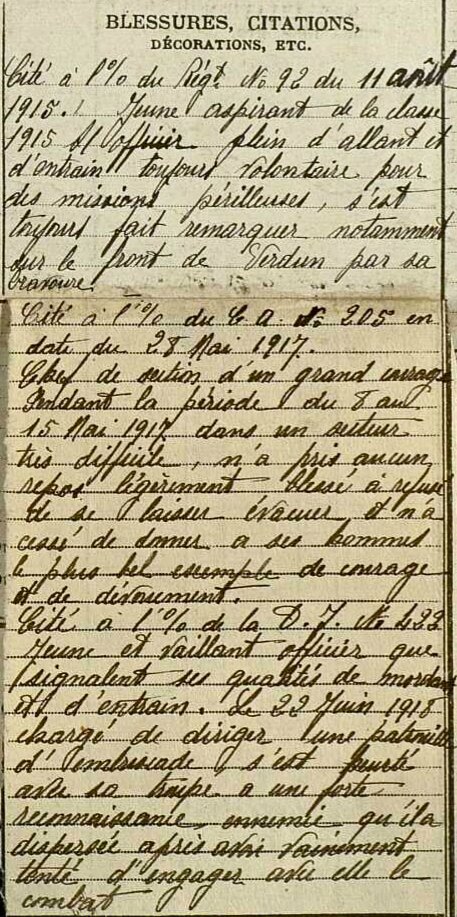 BLESSURES, CITATIONS,
DÉCORATIONS, ETC.
Cité à l'% du Régt No 92 du 11 août
1915. Jeune aspirant de la classe
1915 S/officier plein d'allant et
d'entrain toujours volontaire pour
des missions périlleuses, s'est
toujours fait remarquer notamment
sur le front de Verdun par sa
bravoure
Cité à l'% du C A. No 205 en
date du 28 Mai 1917.
Chef de section d'un grand courage
Pendant la période du 8 au
15 Mai 1917 dans un secteur
très difficile, n'a pris aucun
repos légèrement blessé à refusé
de se laisser évacuer et n'a
cessé de donner a ses hommes
le plus bel exemple de courage
et de dévouement.
Cité à l'% de la D. I. No 422
Jeune et vaillant officier que
signalent ses qualités de mordant
et d'entrain. Le 22 Juin 1918
chargé de diriger une patrouille
d'embuscade, s'est heurté
avec sa troupe a une forte
reconnaissance ennemie qu'il a
dispersée après avoir vainement
tenté d'engager avec elle le
combat